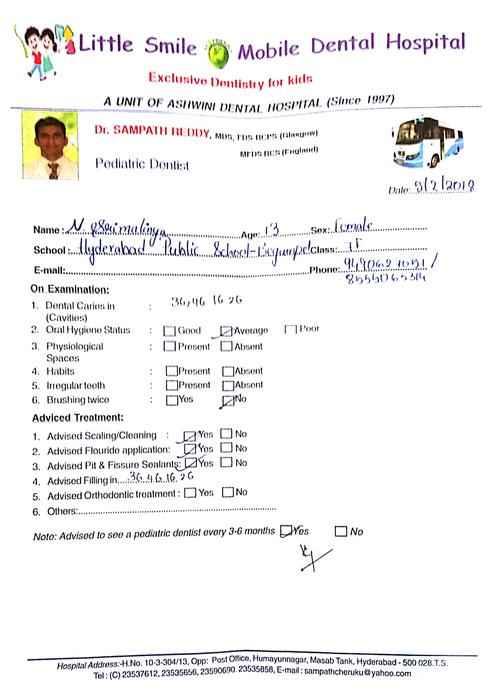 Little Smile Mobile Dental Hospital
Exclusive Dentistry for kids
A UNIT OF ASHWINI DENTAL HOSPITAL (Since 1997)
Dr. SAMPATH REDDY, MDS, FDS RCPS (Glasgow)
MFDS RCS (England)
Pediatric Dentist
Date 9/2/2018
Name : N Age 13 Sex: Female
School : Hyderabad Public School- Class:
E-mail: Phone:
On Examination:
1. Dental Caries in : 36,46 16 26
(Cavities)
2. Oral Hygiene Status : Good Average Poor
3. Physiological : Present Absent
Spaces
4. Habits : Present Absent
5. Irregular teeth : Present Absent
6. Brushing twice : Yes No
Adviced Treatment:
1. Advised Scaling/Cleaning : Yes No
2. Advised Flouride application: Yes No
3. Advised Pit & Fissure Sealants: Yes No
4. Advised Filling in 36 46 16 26
5. Advised Orthodontic treatment : Yes No
6. Others:
Note: Advised to see a pediatric dentist every 3-6 months Yes No
Hospital Address:-H.No. 10-3-304/13, Opp: Post Office, Humayunnagar, Masab Tank, Hyderabad - 500 028.T.S.
Tel : (C) 23537612, 23535656, 23590690. 23535858, E-mail : sampathcheruku@yahoo.com